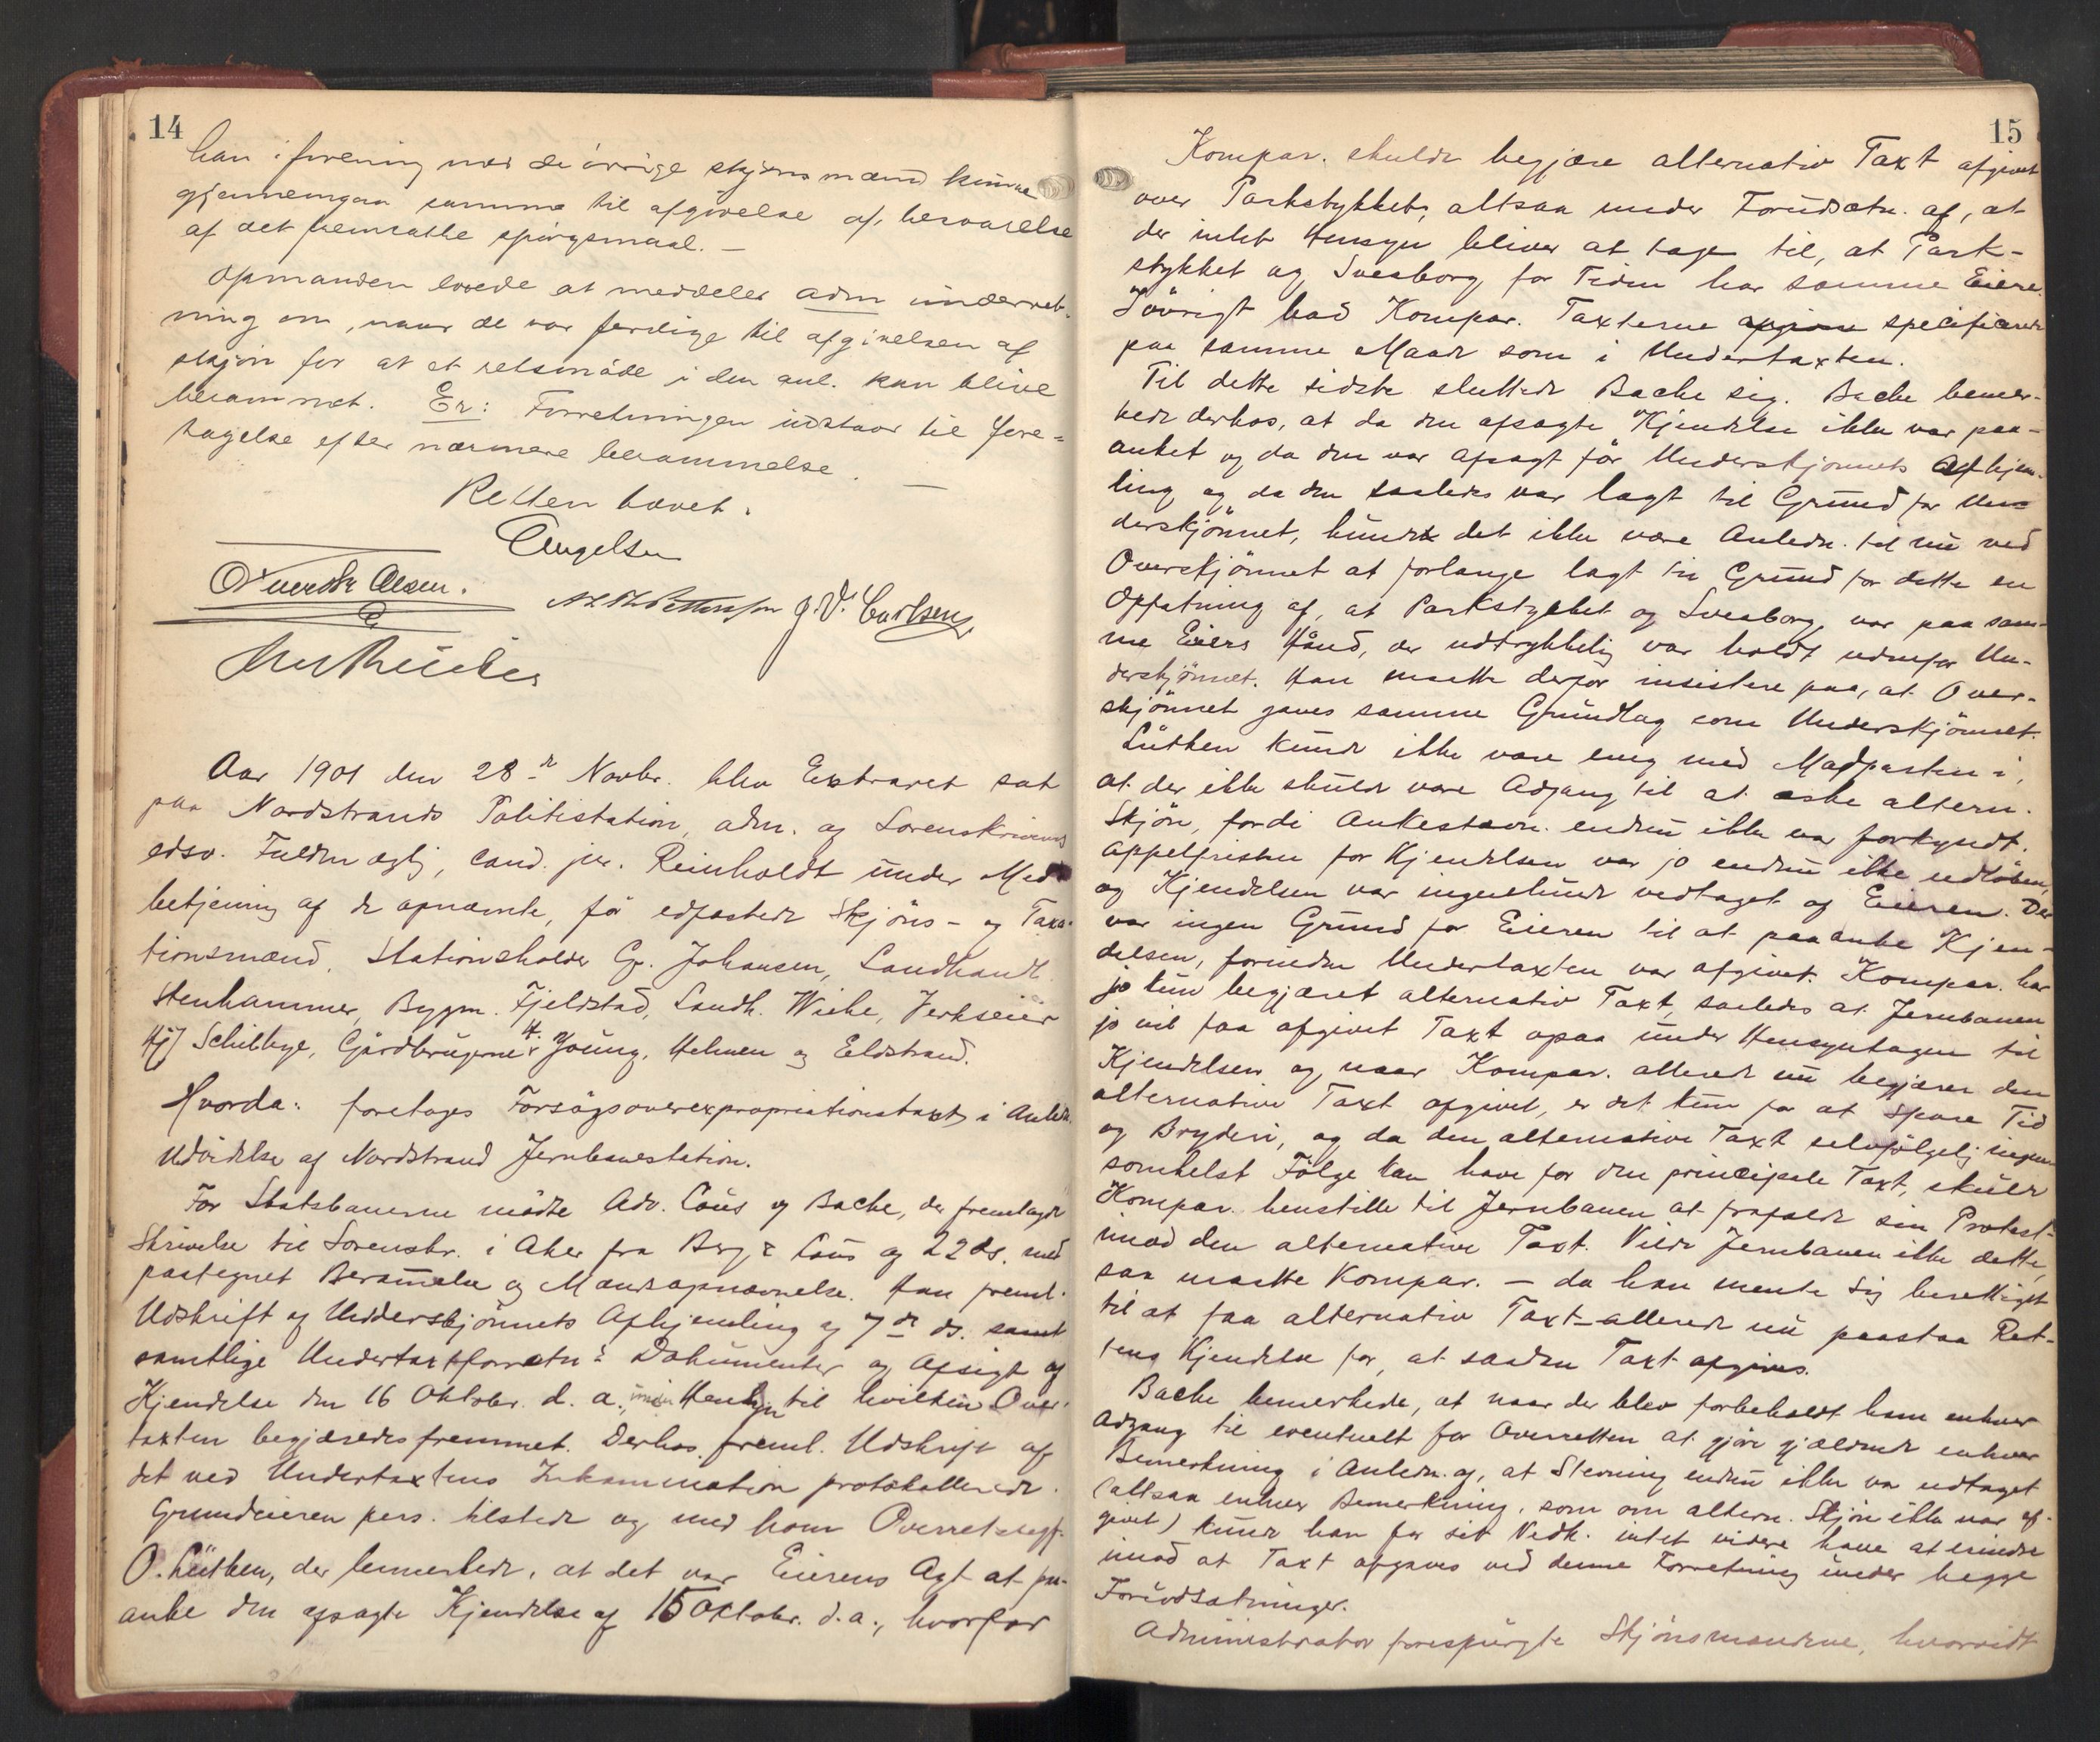 14
han i forening med de övrige skjönsmænd kunne
gjennemgaa samme til afgivelse af besvarelse
af det fremsatte spörgsmaal. —
Opmanden lovede at meddele adm underret-
ning om, naar de var færdige til afgivelsen af
skjön for at et retsmöde i den anl. kan blive
berammet. Er: Forretningen udstaar til fore=
tagelse efter nærmere berammelse. —
Retten hævet.
Engelsen
Olsen. J. V. Carlsen
Aar 1901 den 28de Novbr. blev Extraret sat
paa Nordstrands Politistation, adm. af Sorenskriverens
edsv. Fuldmægtig, cand. jur. Reinholdt under Med-
betjening af de opnævnte, för edfæstede Skjöns- og Taxa-
tionsmænd, Stationsholder Gr. Johansen, Landhandl.
Stenhammer, Bygm. Fjeldstad, Landh. Wiche, Verkseier
Hj. Schibbye, Gårdbrugerne H. Young, Helmen og Eeldstrand.
Hvorda: foretoges Forsögsoverexpropriationstaxt i Anledn.
Udvidelse af Nordstrand Jernbanestation.
For Statsbanerne mödte Adv. Coüs og Bache, der fremlagde
Skrivelse til Sorenskr. i Aker fra B. & Coüs af 22 ds. med
paategnet Berammelse og Mandsopnævnelse. Han freml.
Udskrift af Underskjönnets Afhjemling af 7de ds. samt
samtlige Undertaxtforretn:s Dokumenter og Afsigt af
Kjendelse den 16 Oktobr. d. a., under Hensyn til hvilken Over-
taxten begjæredes fremmet. Derhos freml. Udskrift af
det ved Undertaxtens Inkammination protokollerede.
Grundeieren pers. tilstede og med ham Overretssagf.
O. Lütken, der bemerkede, at det var Eierens Agt at på-
anke den afsagte Kjendelse af 15 Oktobr. d. a., hvorfor
15
Kompar. skulde begjære alternativ Taxt afgivet
over Parkstykket, altsaa under Forudsætn. af, at
der intet Hensyn bliver at tage til, at Park-
stykket og Sveaborg for Tiden har samme Eiere.
Iövrigt bad Kompar. Taxterne specificerede
paa samme Maade som i Undertaxten.
Til dette sidste sluttede Bache sig. Bache bemer-
kede derhos, at da den afsagte Kjendelse ikke var paa-
anket og da den var afsagt för Underskjönnets Afhjem-
ling og da den saaledes var lagt til Grund for Un-
derskjönnet, kunde det ikke være Anledn. til nu ved
Overskjönnet at forlange lagt til Grund for dette en
Opfatning af, at Parkstykket og Sveaborg var paa sam-
me Eiers Hånd, der udtrykkelig var holdt udenfor Un-
derskjönnet. Han maatte derfor insistere paa, at Over-
skjönnet gaves samme Grundlag som Underskjönnet.
Lütken kunde ikke være enig med Modparten i,
at der ikke skulde være Adgang til at æske altern.
Skjön, fordi Ankestævn. endnu ikke var forkyndt.
Appelfristen for Kjendelsen var jo endnu ikke udlöben,
og Kjendelsen var ingenlunde vedtaget af Eieren. Der
var ingen Grund for Eieren til at paaanke Kjen-
delsen, forinden Undertaxten var afgivet. Kompar. har
jo kun begjæret alternativ Taxt, saaledes at Jernbanen
jo vil faa afgivet Taxt ogsaa under Hensyntagen til
Kjendelsen og naar Kompar. allerede nu begjærer den
alternative Taxt afgivet, er det kun for at spare Tid
og Bryderi, og da den alternative Taxt selvfölgelig ingen-
somhelst Fölge kan have for den principale Taxt, skulde
Kompar. henstille til Jernbanen at frafalde sin Protest
imod den alternative Taxt. Vilde Jernbanen ikke dette,
saa maatte Kompar. — da han mente sig berettiget
til at faa alternativ Taxt — allerede nu paastaa Ret-
tens Kjendelse for, at saadan Taxt afgives.
Bache bemerkede, at naar der blev forbeholdt ham enhver
Adgang til eventuelt for Overretten at gjöre gjældende enhver
Bemerkning i Anledn. af, at Stevning endnu ikke var udtaget
(altsaa enhver Bemerkning, som om altern. Skjön ikke var af-
givet) kunde han for sit Vedk. intet videre have at erindre
imod at Taxt afgaves ved denne Forretning under begge
Forudsætninger.
Administrator forespurgte Skjönsmændene, hvorvidt